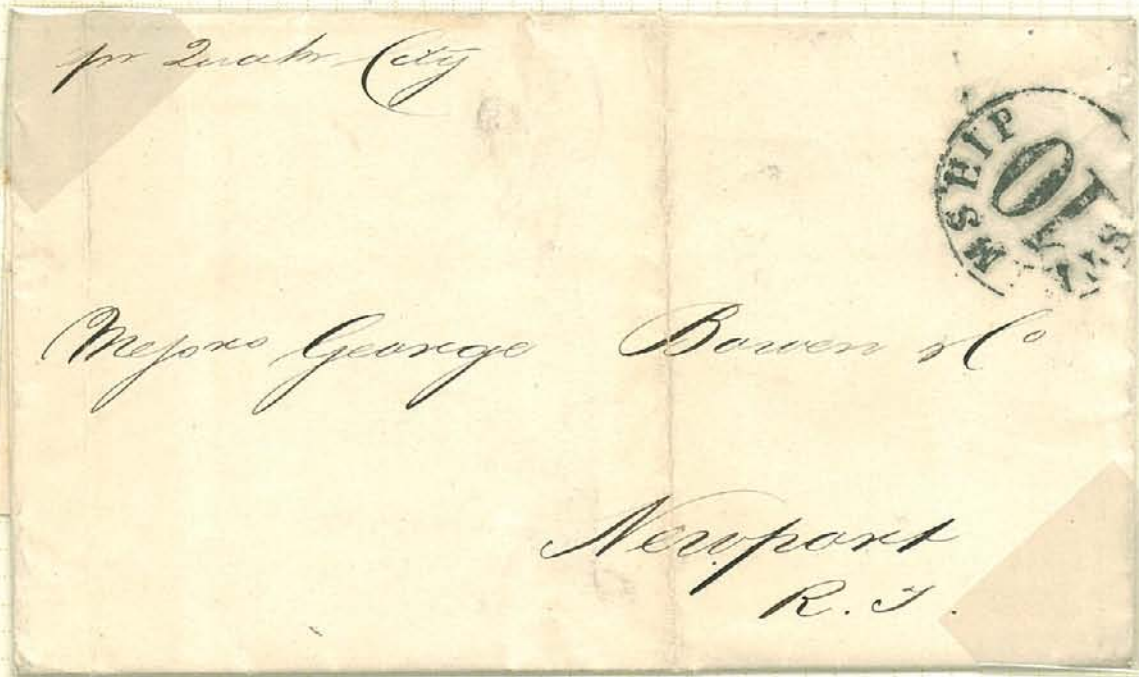 pr Quaker City
STEAMSHIP
10
Messrs George Bowen & Co
Newport
R. I.